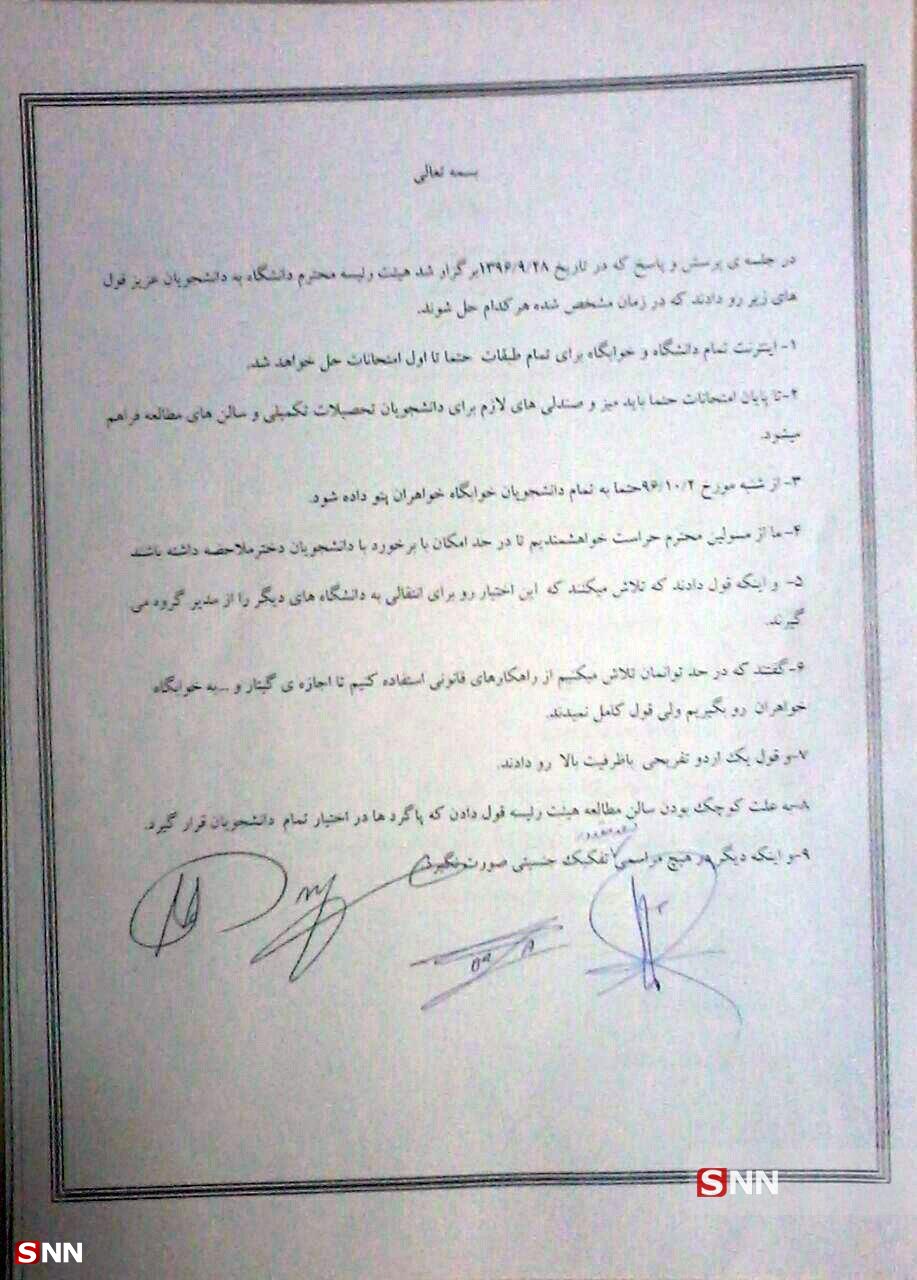 بسمه تعالی
در جلسه ی پرسش و پاسخ که در تاریخ ۱۳۹۶/۹/۲۸برگزار شد هیئت رئیسه محترم دانشگاه به دانشجویان عزیز قول
های زیر رو دادند که در زمان مشخص شده هرکدام حل شوند.
۱- اینترنت تمام دانشگاه و خوابگاه برای تمام طبقات حتما تا اول امتحانات حل خواهد شد.
۲-تا پایان امتحانات حتما باید میز و صندلی های لازم برای دانشجویان تحصیلات تکمیلی و سالن های مطالعه فراهم
میشود.
۳- از شنبه مورخ ۹۶/۱۰/۲حتما به تمام دانشجویان خوابگاه خواهران پتو داده شود.
۴-ما از مسولین محترم حراست خواهشمندیم تا در حد امکان با برخورد با دانشجویان دخترملاحضه داشته باشند
۵- و اینکه قول دادند که تلاش میکنند که این اختیار رو برای انتقالی به دانشگاه های دیگر را از مدیر گروه می
گیرند.
۶-گفتند که در حد توانمان تلاش میکنیم از راهکارهای قانونی استفاده کنیم تا اجازه ی گیتار و ...به خوابگاه
خواهران رو بگیریم ولی قول کامل نمیدند.
۷-و قول یک اردو تفریحی باظرفیت بالا رو دادند.
۸-به علت کوچک بودن سالن مطالعه هیئت رئیسه قول دادن که پاگرد ها در اختیار تمام دانشجویان قرار گیرد.
۹-و اینکه دیگر در هیچ مراسمی تفکیک جنسیتی صورت نگیرد.
SNN
SNN